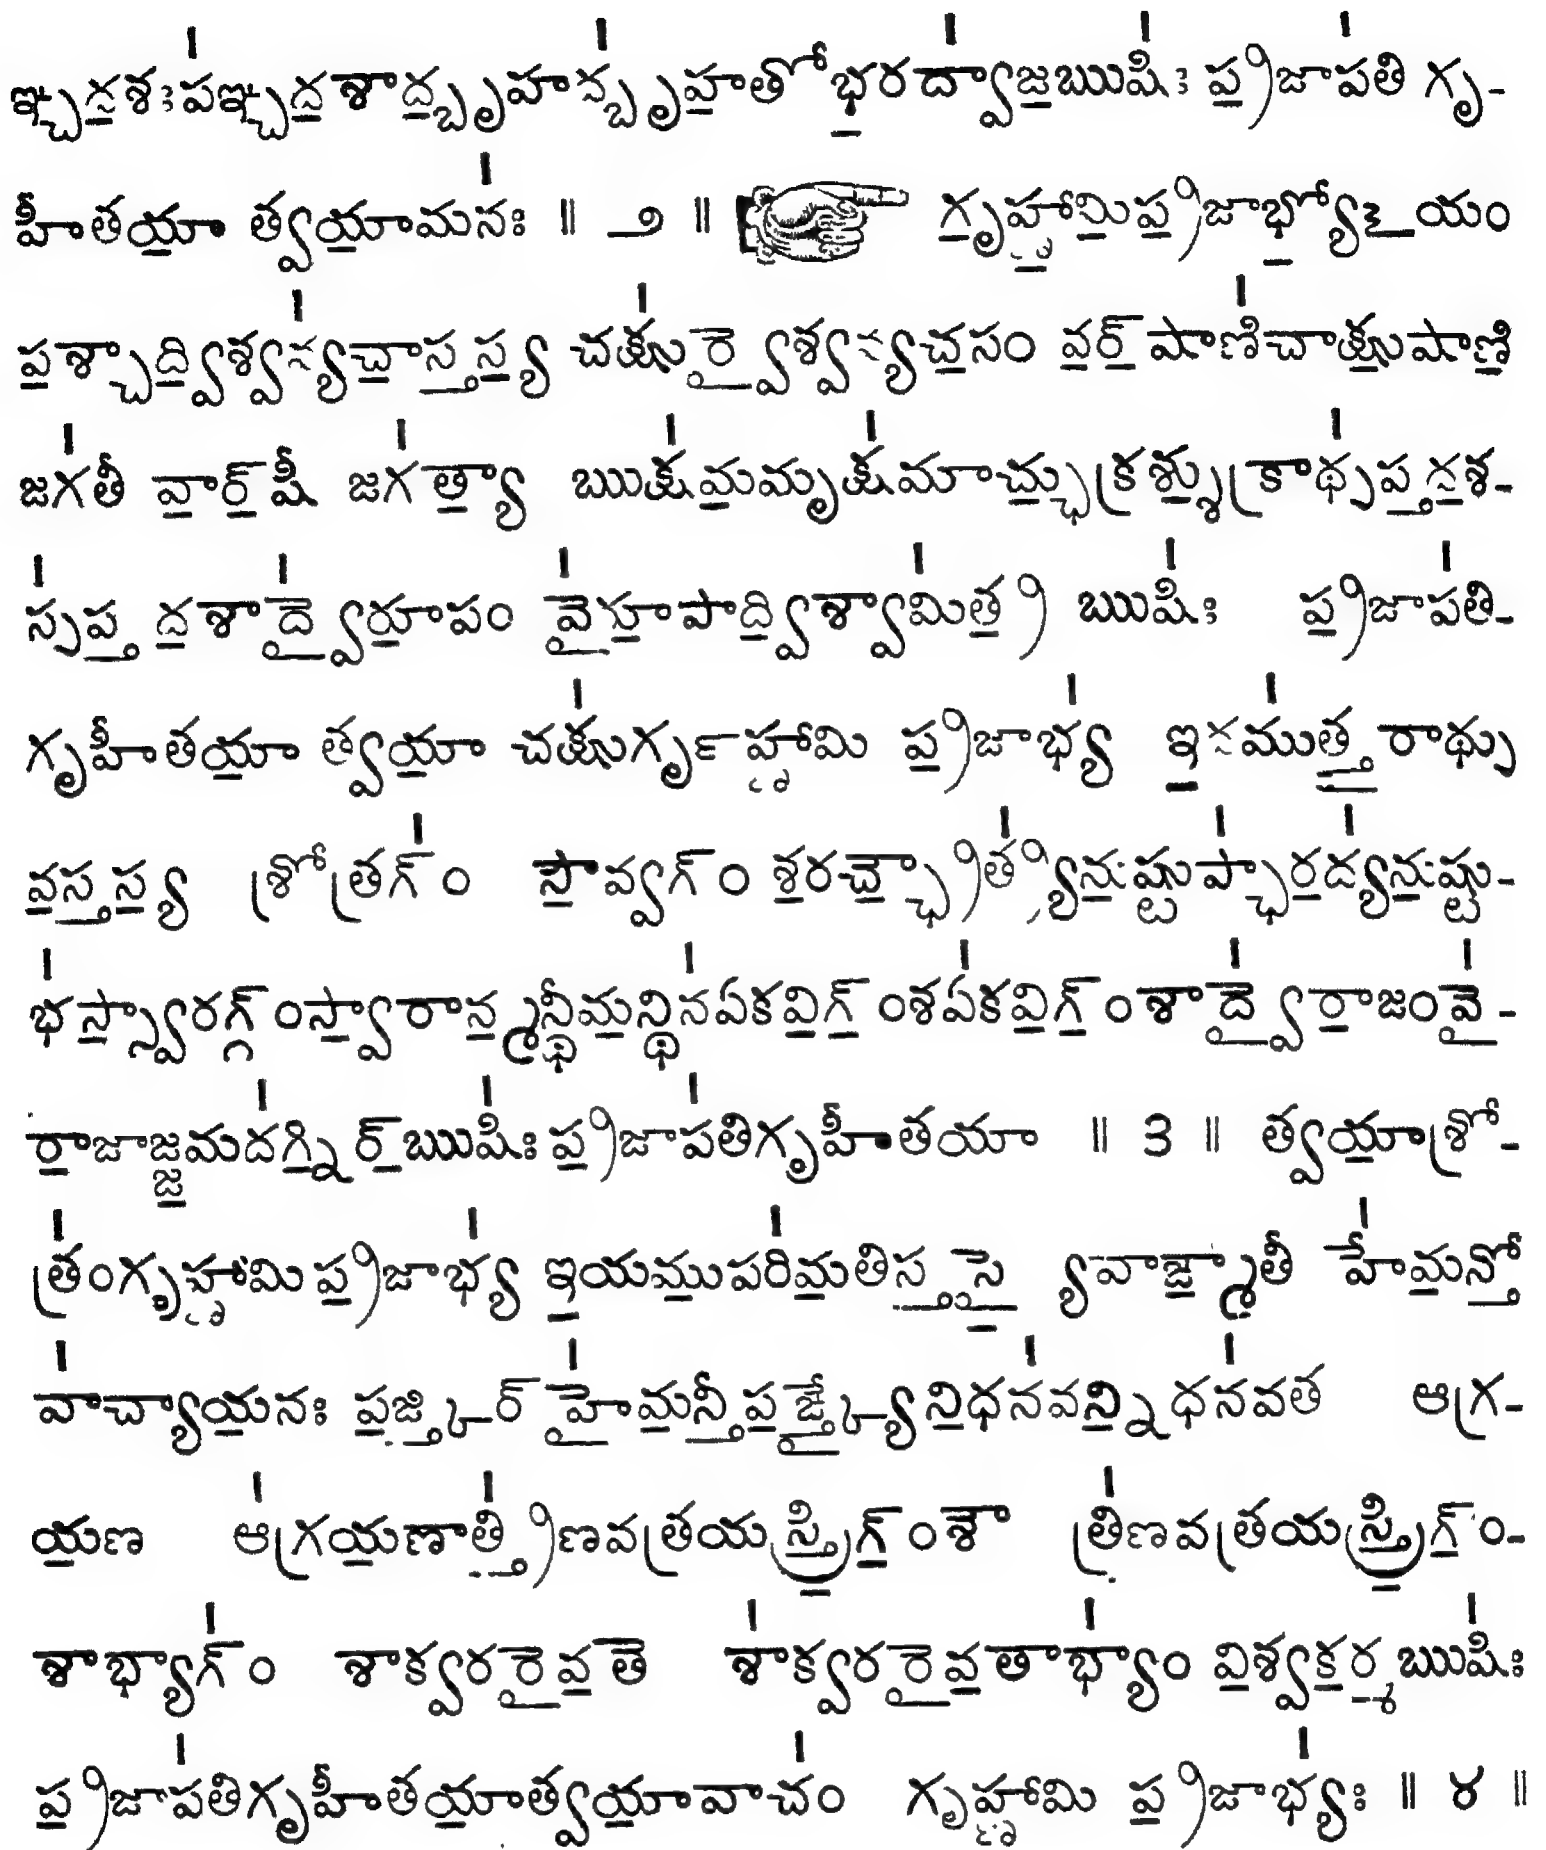 ఞ్చదశఃపఞ్చదశాద్బృహద్బృహతోభరద్వాజఋషిః ప్రజాపతి గృ-
హీతయా త్వయామనః ॥ ౨ ॥ గృహ్ణామిప్రజాభ్యోఽయం
పశ్చాద్విశ్వవ్యచాస్తస్య చక్షుర్వైశ్వవ్యచసం వర్‌షాణిచాక్షుషాణి
జగతీ వార్‌షీ జగత్యా ఋక్షమమృక్షమాచ్ఛుక్రశ్శుక్రాథ్సప్తదశ-
స్సప్త దశాద్వైరూపం వైరూపాద్విశ్వామిత్ర ఋషిః ప్రజాపతి-
గృహీతయా త్వయా చక్షుర్గృహ్ణామి ప్రజాభ్య ఇదముత్తరాథ్సు
వస్తస్య శ్రోత్రగ్ం సౌవ్వగ్ం శరచ్ఛ్రౌత్ర్యనుష్టుప్ఛారద్యనుష్టు-
భస్స్వారగ్గ్ంస్వారాన్మన్థీమన్థినఏకవిగ్ంశఏకవిగ్ంశాద్వైరాజంవై-
రాజాజ్జమదగ్నిర్‌ఋషిః ప్రజాపతిగృహీతయా ॥ ౩ ॥ త్వయాశ్రో-
త్రంగృహ్ణామిప్రజాభ్య ఇయముపరిమతిస్తస్యై వాఙ్మాతీ హేమన్తో
వాచ్యాయనః పఙ్క్తిర్‌హైమన్తీపఙ్క్త్యైనిధనవన్నిధనవత ఆగ్ర-
యణ ఆగ్రయణాత్త్రిణవత్రయస్త్రిగ్ంశౌ త్రిణవత్రయస్త్రిగ్ం-
శాభ్యాగ్ం శాక్వరరైవతే శాక్వరరైవతాభ్యాం విశ్వకర్మఋషిః
ప్రజాపతిగృహీతయాత్వయావాచం గృహ్ణామి ప్రజాభ్యః ॥ ౪ ॥